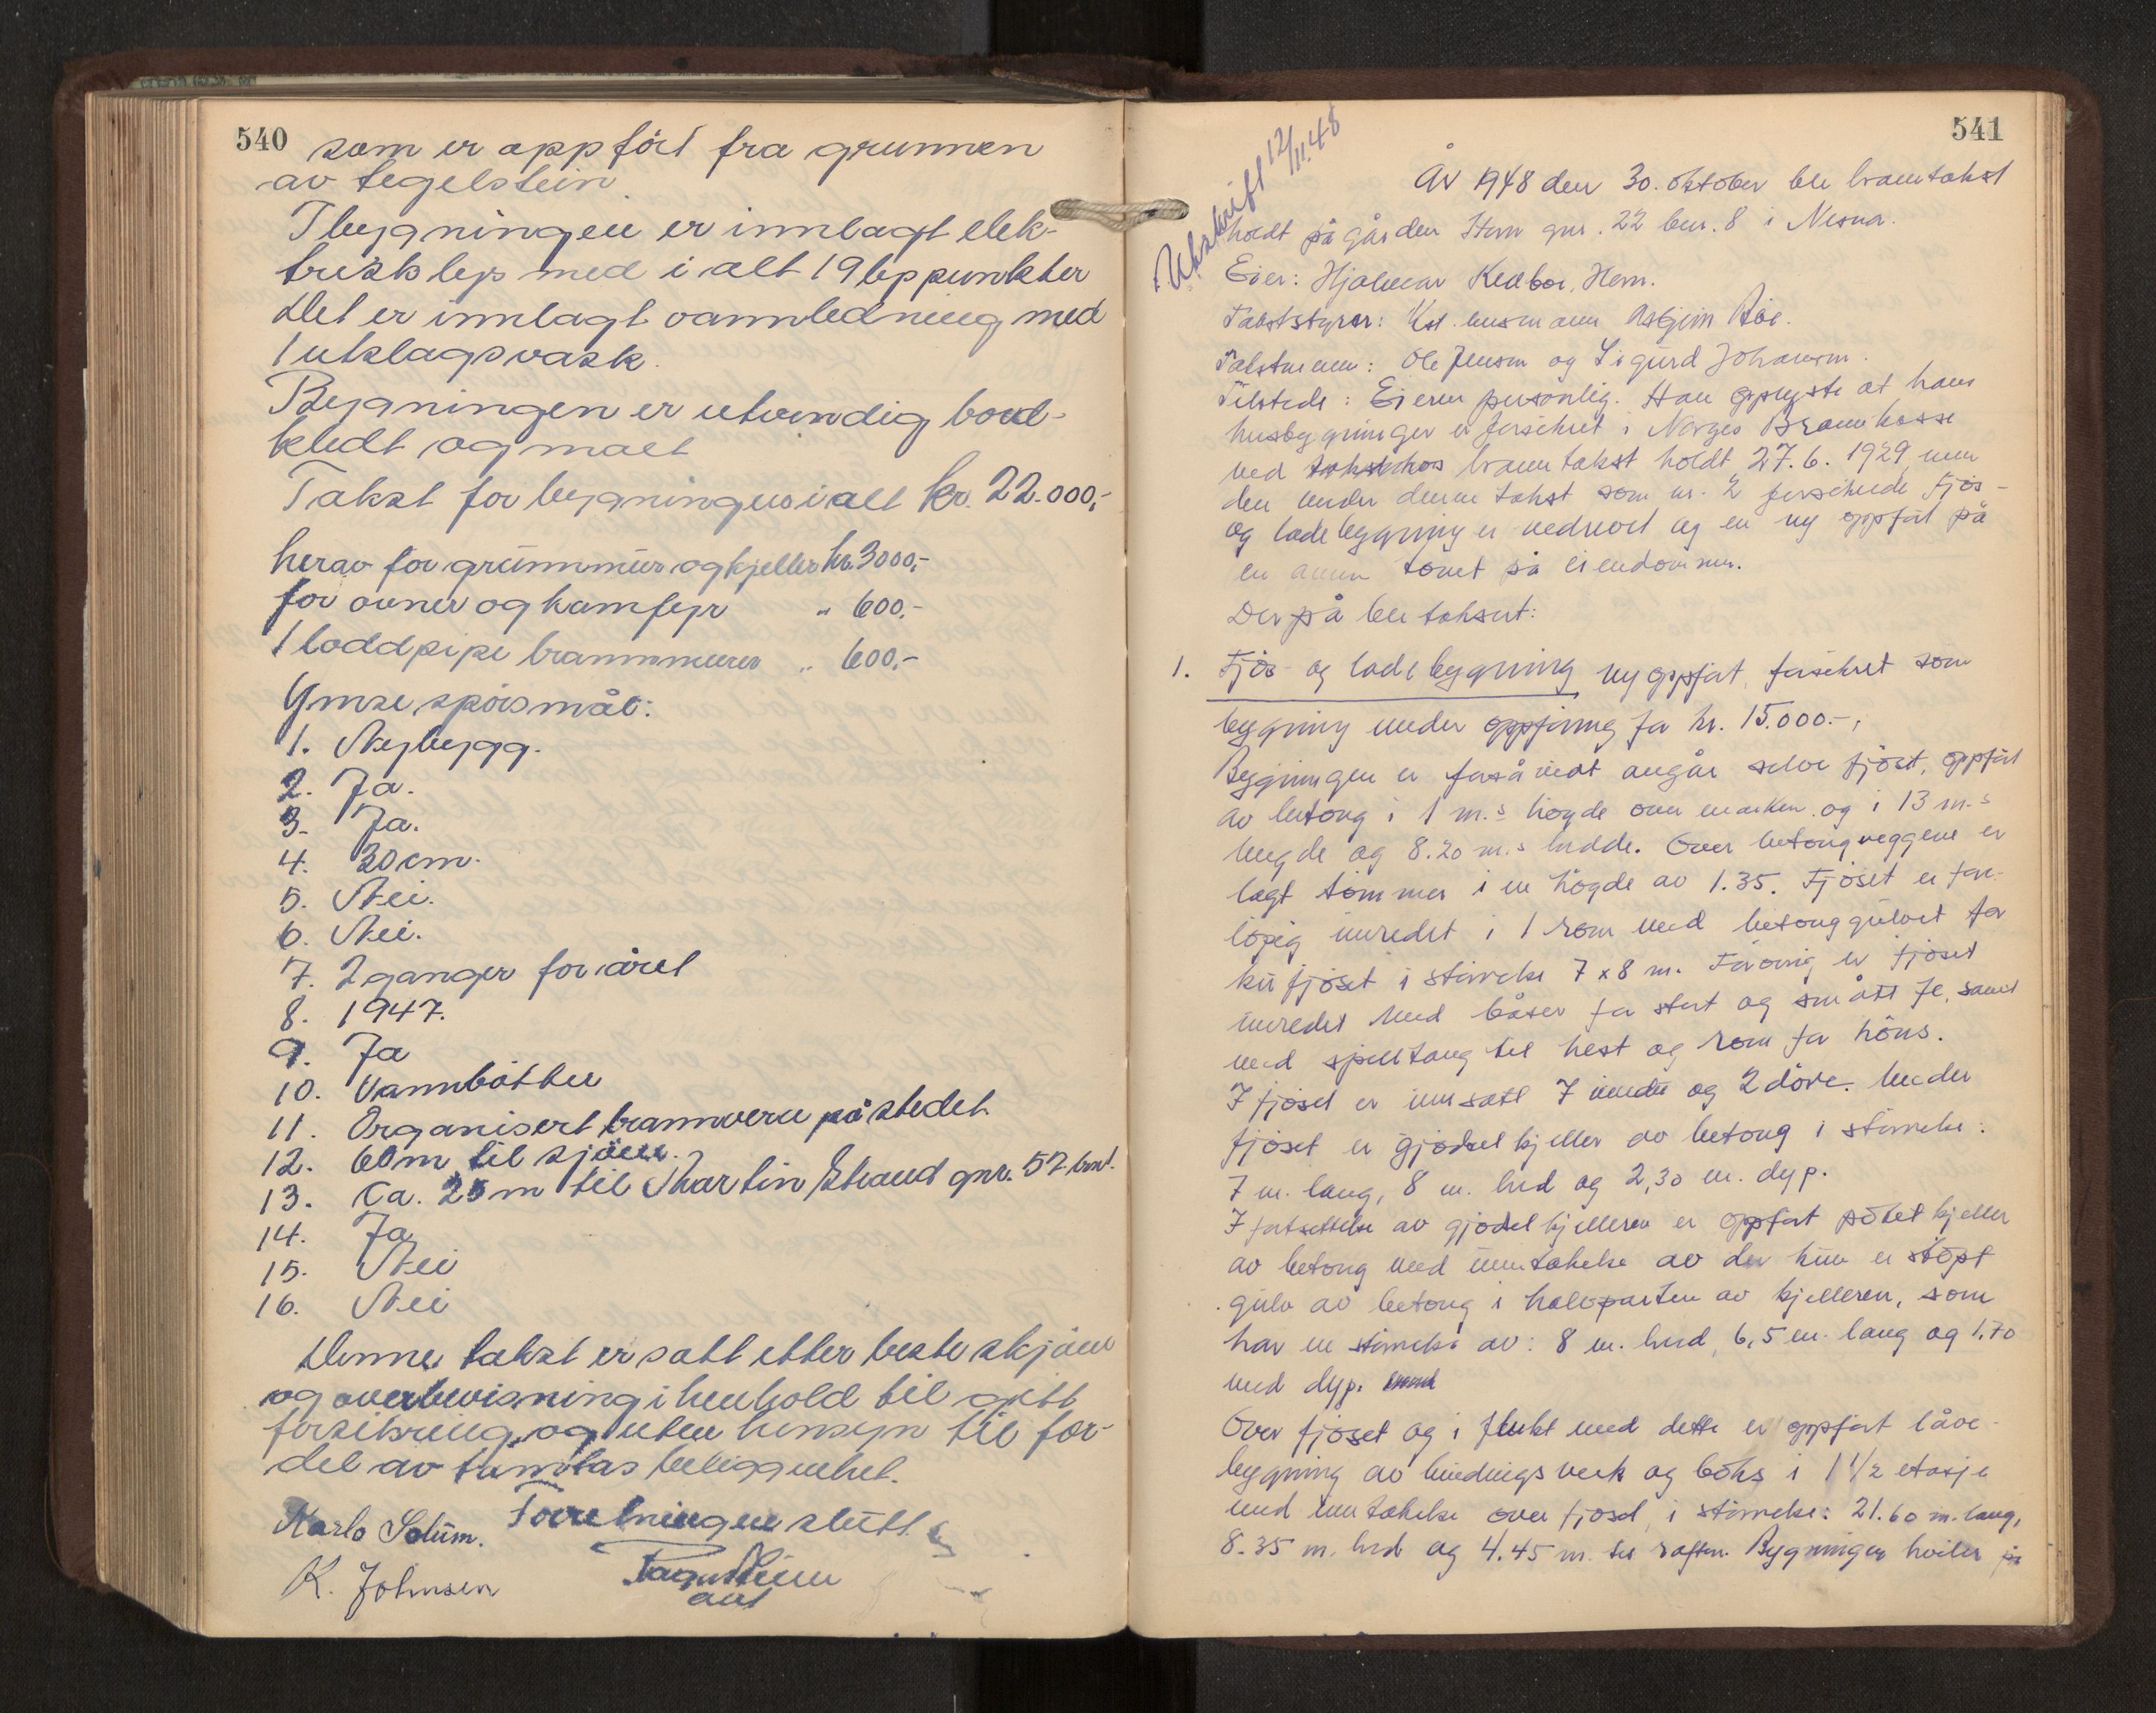 540
som er oppført fra grunnen
av tegelstein
I bygningen er innlagt elek-
trisk lys med i alt 19 lyspunkter
Det er innlagt vannledning med
1 utslagsvask.
Bygningen er utvendig bord-
kledt og malt
Takst for bygningen i alt kr. 22.000,-
herav for grunnmur og kjeller kr. 3000,-
for ovner og komfyr " 600.-
1 loddpipe brannmurer " 600,-
Ymse spørsmål:
1. Nybygg.
2. Ja.
3. Ja.
4. 30 cm.
5. Nei.
6. Nei.
7. 2 ganger for året
8. 1947.
9. Ja
10. Vannbøtter
11. Organisert brannvern på stedet
12. 60 m til sjøen.
13. Ca. 25 m til Martin Strand gnr. 57 bnr 1.
14. Ja
15. Nei
16. Nei
Denne takst er satt etter beste skjønn
og overbevisning i henhold til gitt
forsikring og uten hensyn til for-
del av tomtas beliggenhet.
Forretningen slutt
Karlo Solum.
K. Johnsen
541
Utskrift 12/11.48
År 1948 den 30. oktober ble branntakst
holdt på gården Hem gnr. 22 bnr. 8 i Nesna.
Eier: Hjalmar Hem.
Takststyrer: Kst. lensmann Asbjørn
Takstmenn: Ole Jensen og Sigurd Johansen.
Tilstede: Eieren personlig. Han opplyste at hans
husbygninger er forsikret i Norges Brannkasse
ved branntakst holdt 27.6. 1929, men
den under denne takst som nr. 2 forsikrede fjøs-
og ladebygning er nedrevet og en ny oppført på
en annen tomt på eiendommen.
Derpå ble taksert:
1. Fjøs- og ladebygning nyoppført, forsikret som
bygning under oppføring for kr. 15.000.-,
Bygningen er forsåvidt angår selve fjøset, oppført
av betong i 1 m.s høgde over marken og i 13 m.s
lengde og 8.20 m.s bredde. Over betongveggene er
lagt tømmer i en høgde av 1.35. Fjøset er fore-
løpig innredet i 1 rom med betonggulvet for
kufjøset i størrelse 7 x 8 m. Forøvrig er fjøset
innredet med båser for stort og smått fe, samt
med spilltaug til hest og rom for høns.
I fjøset er innsatt 7 vinduer og 2 døre. Under
fjøset er gjødselkjeller av betong i størrelse:
7 m. lang, 8 m. bred og 2,30 m. dyp.
I fortsettelse av gjødselkjelleren er oppført potetkjeller
av betong med unntakelse av der kun er støpt
gulv av betong i halvparten av kjelleren, som
har en størrelse av: 8 m. bred, 6,5 m. lang og 1.70
med dyp.
Over fjøset og i flukt med dette er oppført låve-
bygning av bindingsverk og boks i 1 1/2 etasje
med unntakelse over fjøset, i størrelse: 21.60 m. lang,
8.35 m. bred og 4.45 m. til raften. Bygningen hviler på